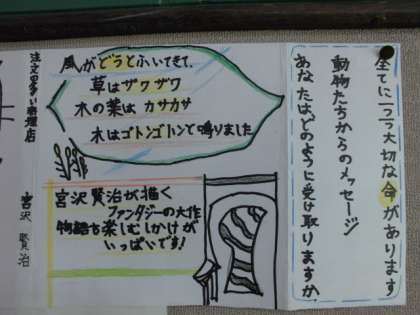 全てに一つ一つ大切な命があります
動物たちからのメッセージ
あなたは、どのように受け取りますか。
風がどうとふいてきて、
草はザワザワ
木の葉は カサカサ
木はゴトンゴトンと鳴りました
宮沢賢治が描く
ファンタジーの大作
物語を楽しむしかけが
いっぱいです!
注文の多い料理店
宮沢 賢治